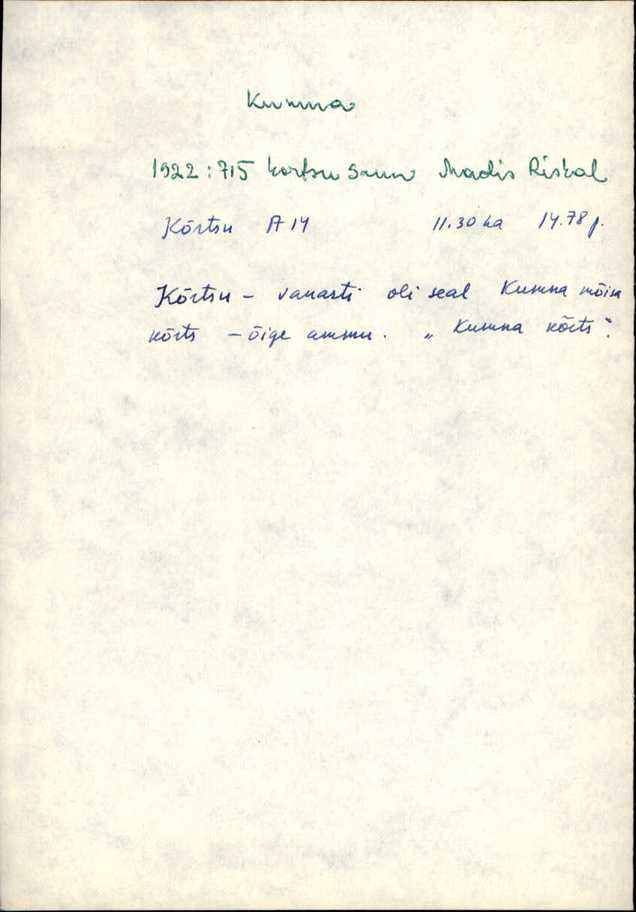 Kumna
1922: 715 Kõrtsu saun Madis Riskal
Kõrtsu A 14 11.30 ha 14.78 r.
Kõrtsu - vanasti oli seal Kumna mõisa
kõrts - õige ammu. „Kumna kõrts“.